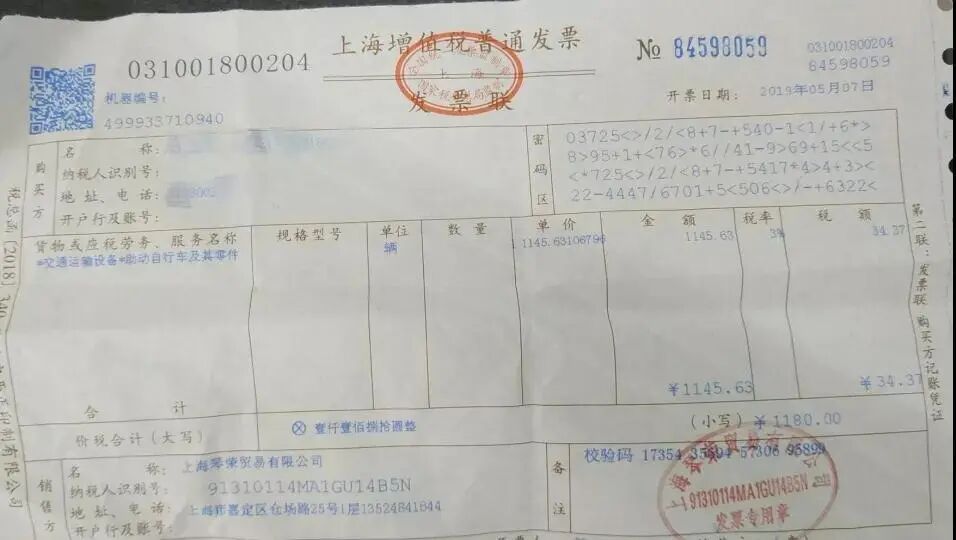 上海增值税普通发票
发票联
031001800204
№ 84598059
031001800204
84598059
机器编号:
499933710940
开票日期: 2019年05月07日
购买方
名 称:
纳税人识别号:
地址、电话:
开户行及账号:
密码区
03725<>/2/<8+7-+540-1<1/+6*>
8>95+1+<76>*6//41-9>69+15<<5
<*725<>/2/<8+7-+5417*4>4+3><
22-4447/6701+5<506<>/-+6322<
货物或应税劳务、服务名称 规格型号 单位 数量 单价 金额 税率 税额
*交通运输设备*助动自行车及其零件 辆 1145.63106796 1145.63 3% 34.37
合 计 ￥1145.63 ￥34.37
价税合计(大写) ⊗ 壹仟壹佰捌拾圆整 (小写) ￥1180.00
销售方
名 称: 上海琴荣贸易有限公司
纳税人识别号: 91310114MA1GU14B5N
地址、电话: 上海市嘉定区仓场路25号1层13524841844
开户行及账号:
备注
校验码 17354 35894 57306 95899
91310114MA1GU14B5N
发票专用章
第二联:发票联 购买方记账凭证
税总函〔2018〕340
印制有限公司